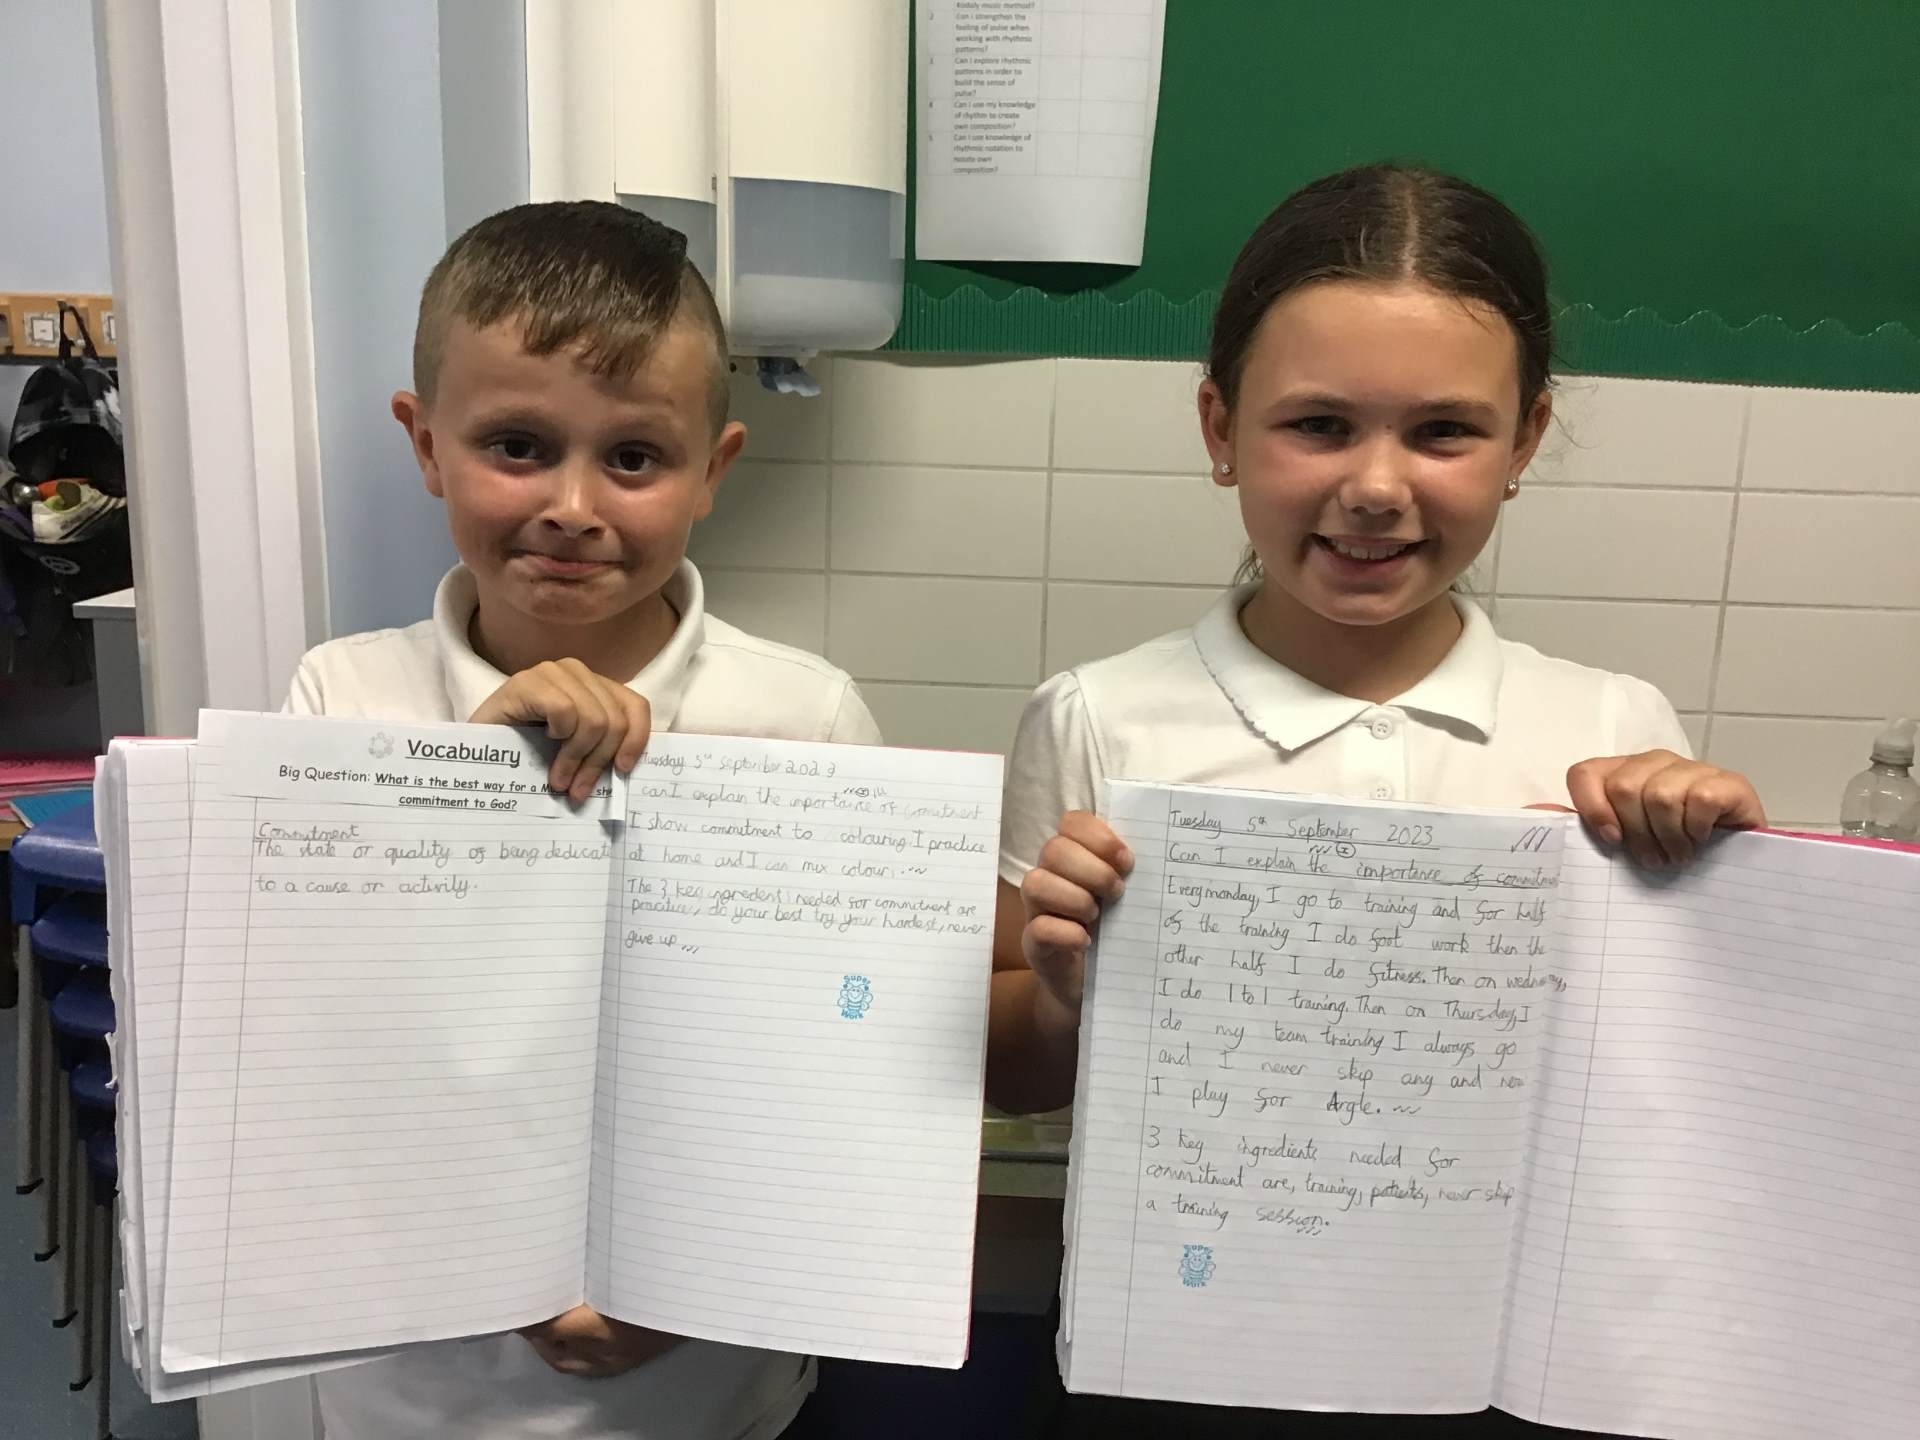 Kodaly music method?
2 Can I strengthen the
feeling of pulse when
working with rhythmic
patterns?
3 Can I explore rhythmic
patterns in order to
build the sense of
pulse?
4 Can I use my knowledge
of rhythm to create
own composition?
5 Can I use knowledge of
rhythmic notation to
notate own
composition?
Vocabulary
Big Question: What is the best way for a
commitment to God?
Commitment
The state or quality of being dedicat
to a cause or activity.
Tuesday 5th September 2023
can I explain the importance of comitment
I show commitment to colouring. I practice
at home and I can mix colour.
The 3 key ingredent needed for commitment are
practice, do your best try your hardest, never
give up
Super
Work
Tuesday 5th September 2023
Can I explain the importance of commitmen
Every monday, I go to training and for half
of the training I do foot work then the
other half I do fitness. Then on
I do 1 to 1 training. Then on Thursday, I
do my team training I always go
and I never skip any and now
I play for Argle.
3 key ingredients needed for
commitment are, training, never skip
a training session.
Super
Work